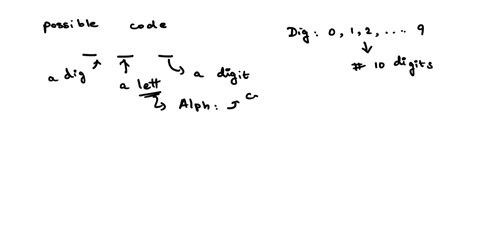 possible code
Dig: 0, 1, 2, .... 9
# 10 digits
a dig
a lett
a digit
Alph: